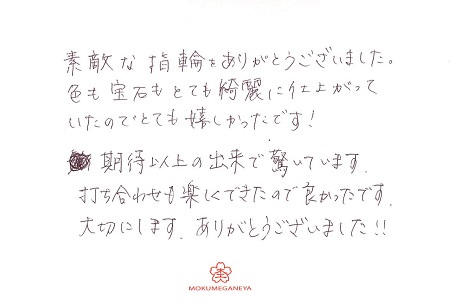 素敵な指輪をありがとうございました。
色も宝石もとても綺麗に仕上がって
いたのでとても嬉しかったです!
期待以上の出来で驚いています.
打ち合わせも楽しくできたので良かったです.
大切にします. ありがとうございました!!
MOKUMEGANEYA